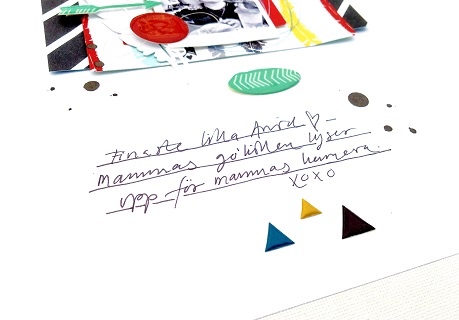 Finaste lilla Arvid ♡ –
mammas gökotten lyser
upp för mammas kamera.
xoxo